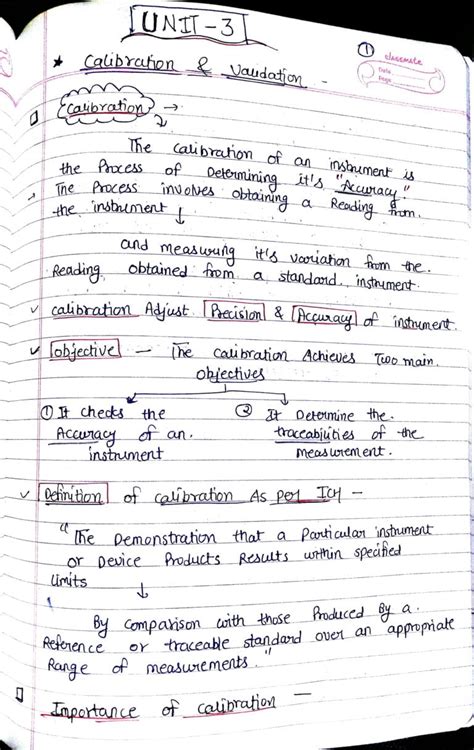 UNIT-3
1
classmate
Date
Page
★ Calibration & Validation -
Calibration →
The calibration of an instrument is
the Process of Determining it's "Accuracy"
→ The Process involves obtaining a Reading from.
the instrument ↓
and measuring it's variation from the.
Reading obtained from a standard instrument.
✓ calibration Adjust Precision & Accuracy of instrument.
✓ objective — The calibration Achieves Two main.
objectives
① It checks the
Accuracy of an.
instrument
② It Determine the.
traceabiities of the
measurement.
✓ Definition of calibration As per ICH -
"The Demonstration that a Particular instrument
or Device Products Results within specified
limits
↓
By comparison with those Produced By a.
Reference or traceable standard over an appropriate
Range of measurements."
Importance of calibration —